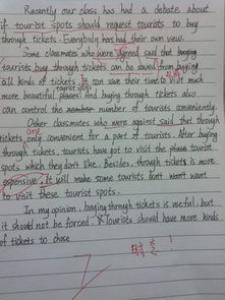 Recently our class has had a debate about
if tourist spots should request tourists to buy
through tickets. Everybody has had their own view.
Some classmates who were agreed said that buying
tourists buy through tickets can be saved from buying
all kinds of tickets. It can save their time to visit much
more beautiful places and buying through tickets also
can control the number of tourists conveniently.
Other classmates who were against said that through
tickets only convenient for a part of tourists. After buying
through tickets, tourists have got to visit the place tourist
spots which they don't like. Besides, through tickets is more
expensive. It will make some tourists don't want
to visit these tourist spots.
In my opinion, buying through tickets is useful, but
it should not be forced. Tourists should have more kinds
of tickets to chose